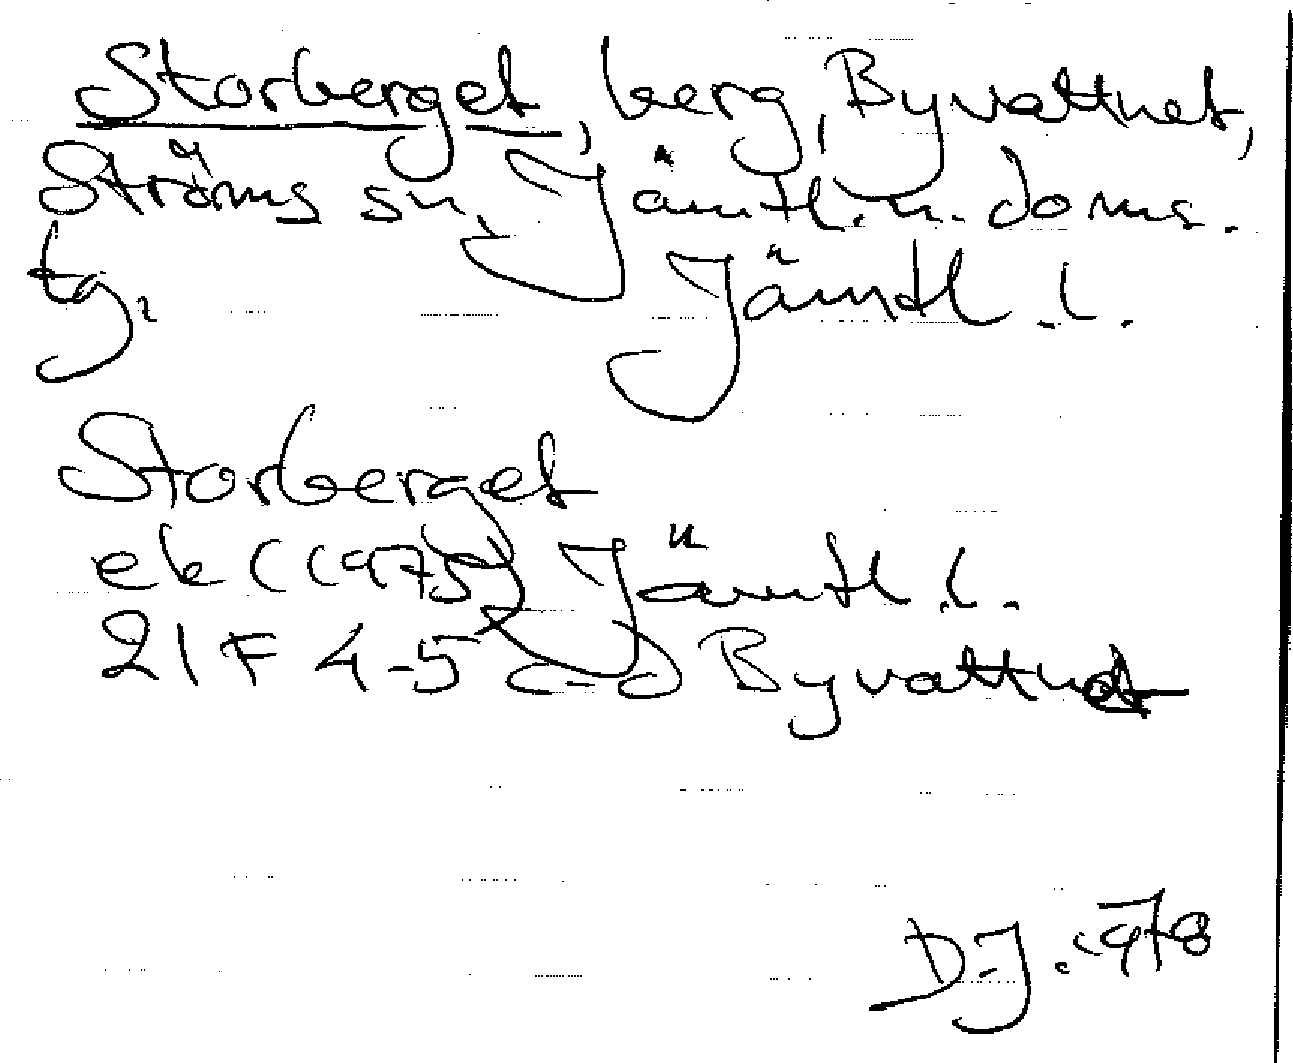 Storberget, berg, Byvattnet,
Ströms sn, Jämtl. n. doms.
tg, Jämtl. l.
Storberget
ek (1975) Jämtl. l.
21F 4-5 c-d Byvattnet
D-J. 1978